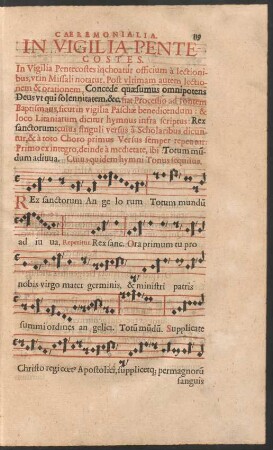 CAEREMONIALIA. 89
IN VIGILIA PENTE-
COSTES.
In Vigilia Pentecostes inchoatur officium à lectioni-
bus, vt in Missali notatur, Post vltimam autem lectio-
nem & orationem, Concede quæsumus omnipotens
Deus vt qui solennitatem, &c. fiat Processio ad fontem
Baptismatis, sicut in vigilia Paschæ benedicendum: &
loco Litaniarum, dicitur hymnus infra scriptus: Rex
sanctorum: cuius singuli versus à Scholaribus dicun-
tur, & à toto Choro primus Versus semper repetitur
Primo ex integro, deinde à medietate, ibi Totum mũ-
dum adiuua. Cuius quidem hymni Tonus sequitur.
REx sanctorum An ge lo rum Totum mundũ
ad iu ua, Repetitur Rex sanc. Ora primum tu pro
nobis virgo mater germinis, & ministri patris
summi ordines an gelici. Totũ mũdũ. Supplicate
Christo regi Apostolici, supplicetq; permagnorũ
sanguis